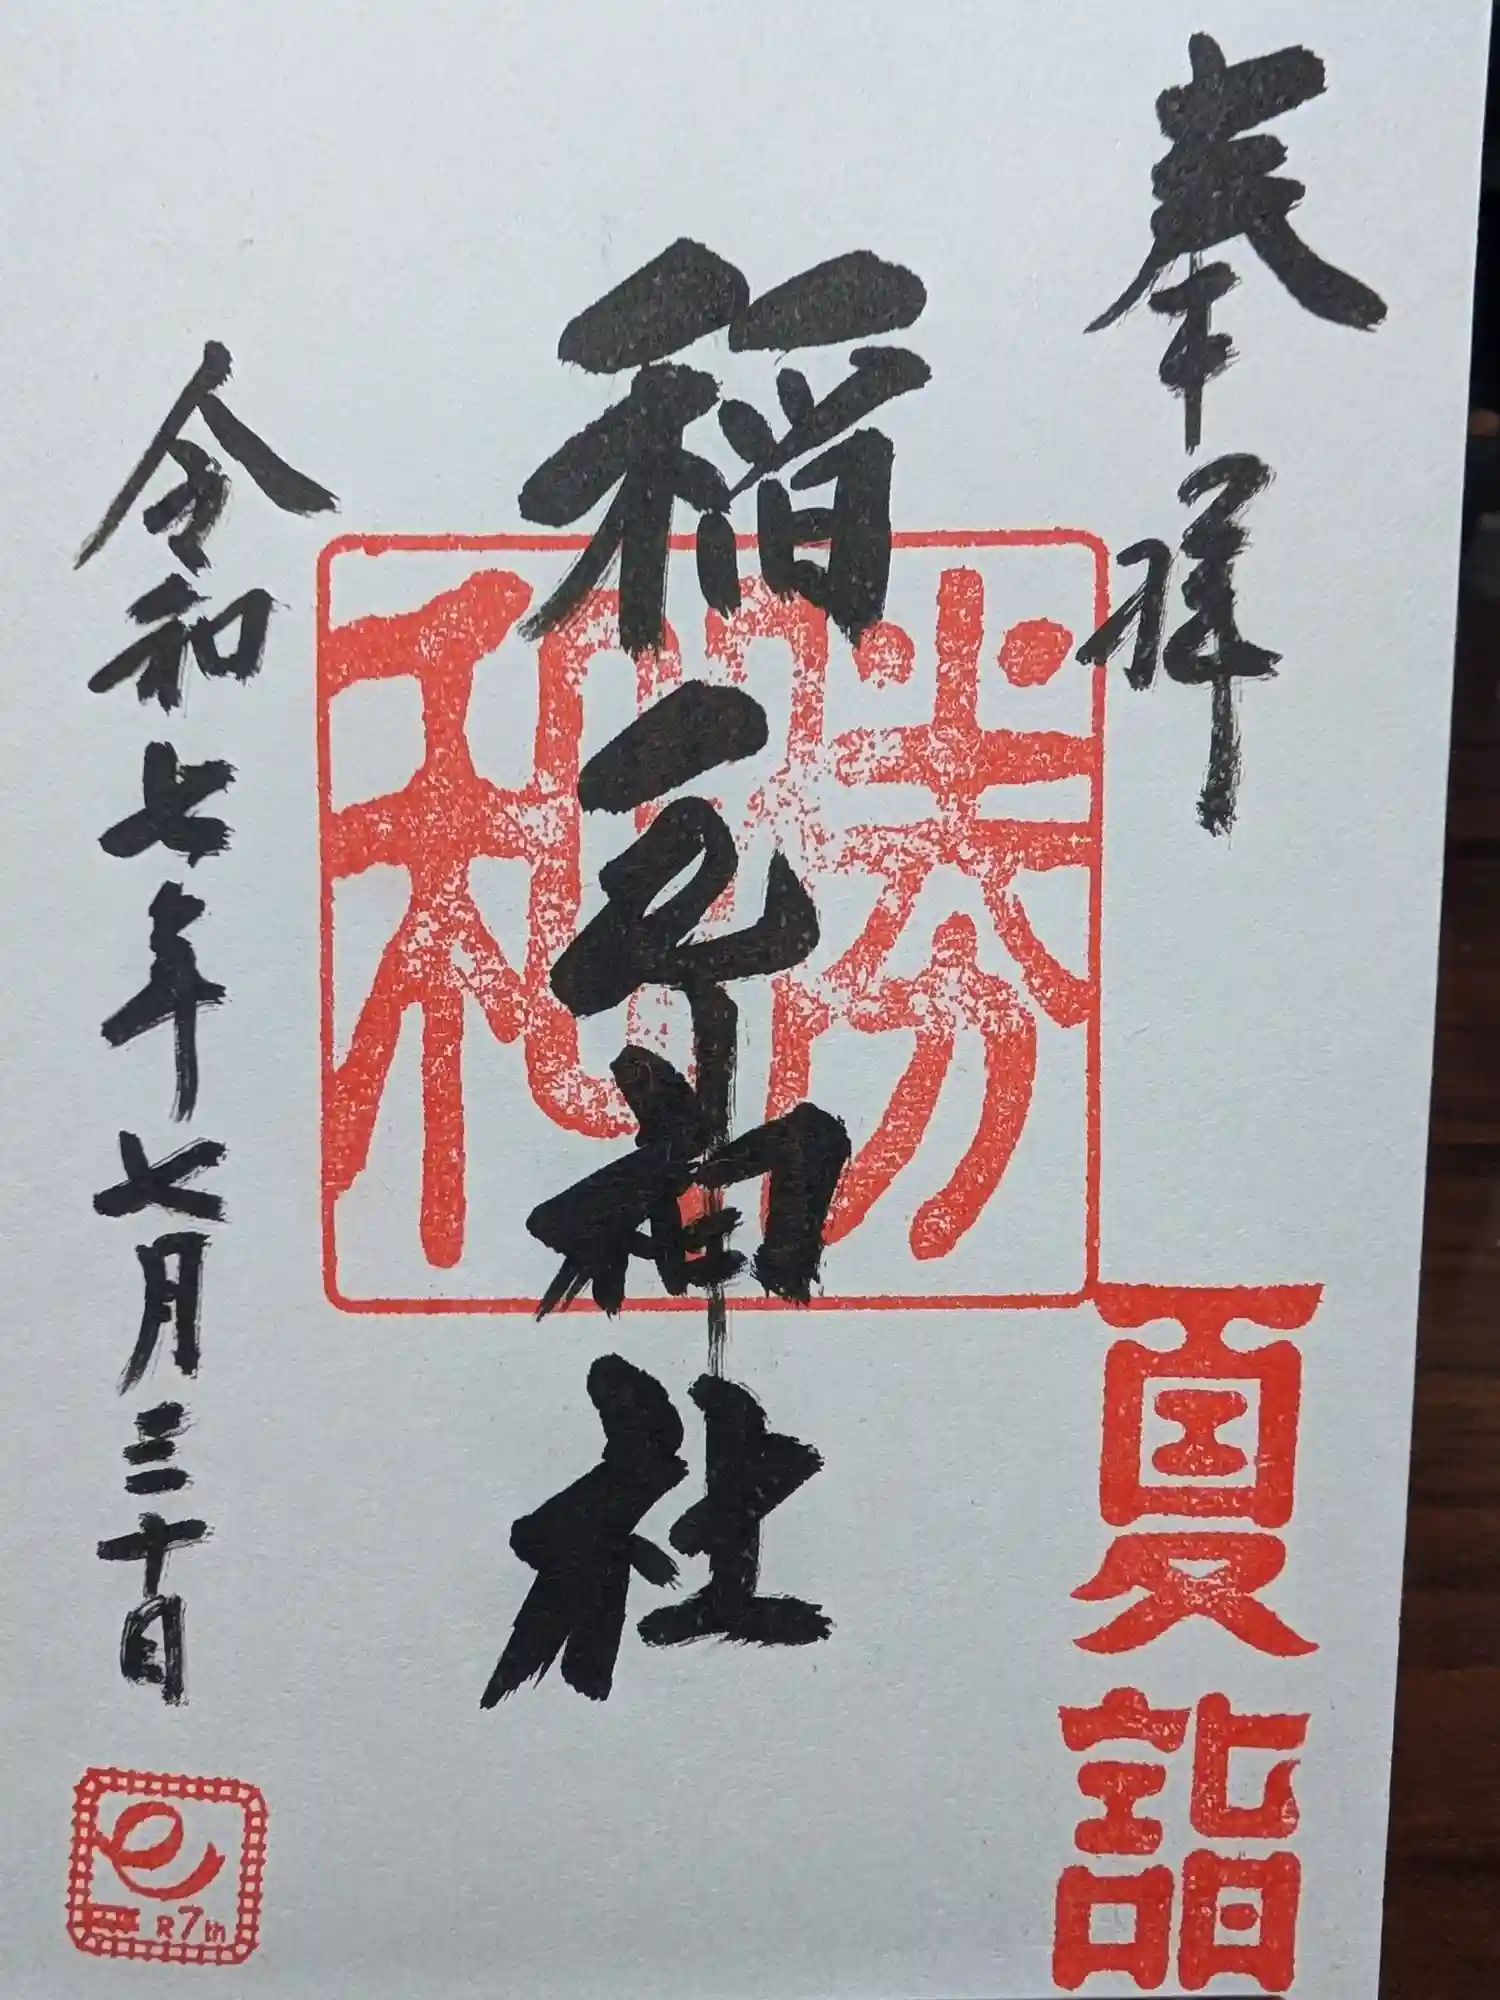 奉拝
夏詣
勝和
稲毛神社
令和七年七月三十日
R7th